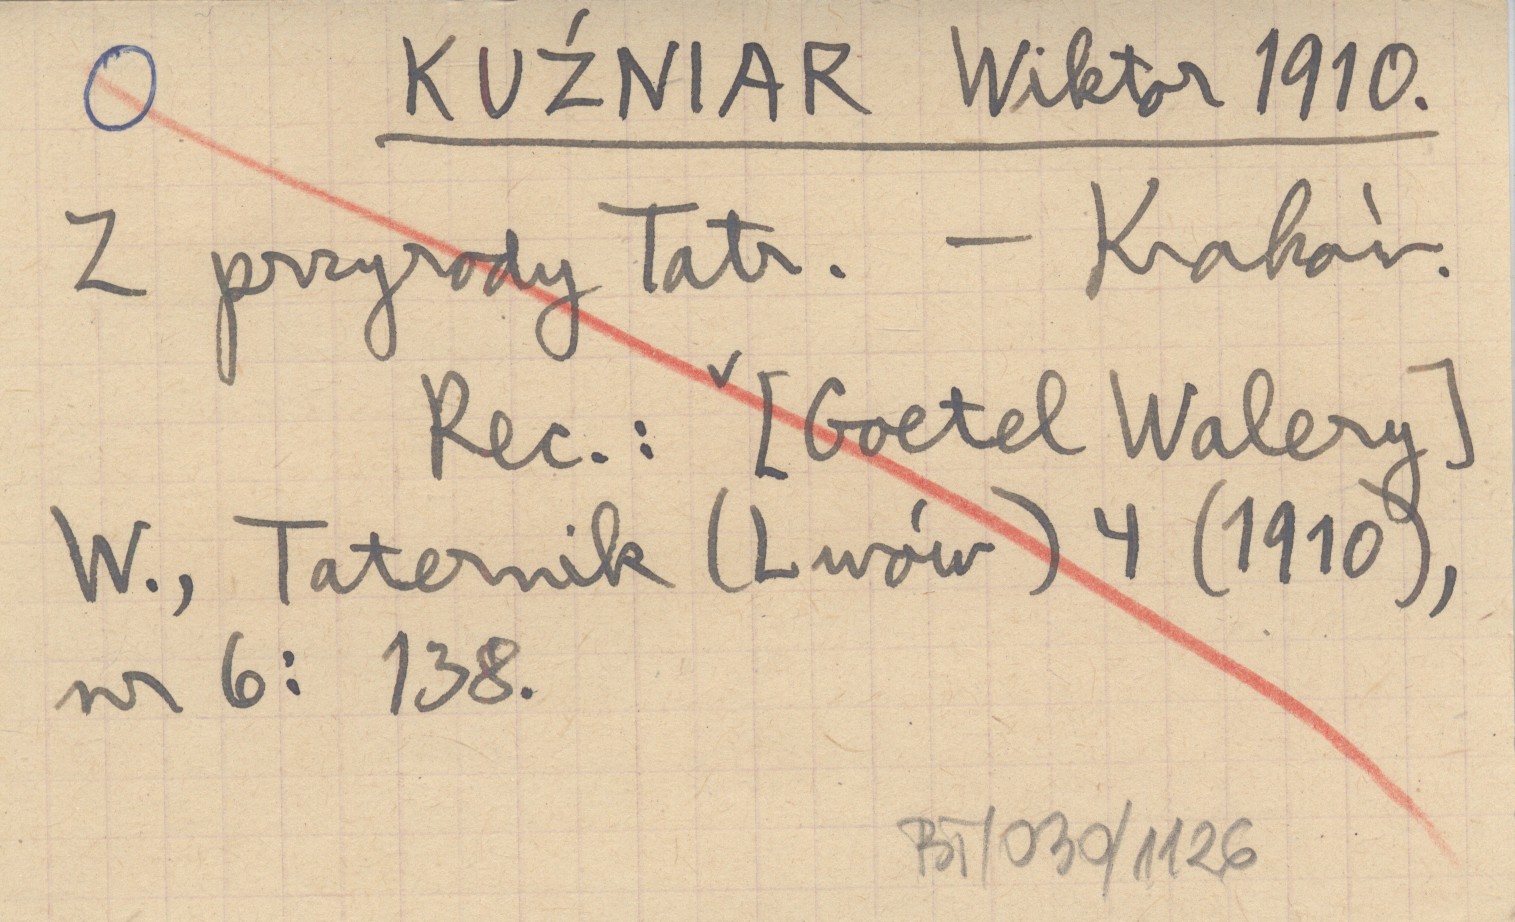 KUŹNIAR Wiktor 1910.
Z przyrody Tatr. — Kraków.
Rec.: [Goetel Walery]
W., Taternik (Lwów) 4 (1910),
nr 6: 138.
BT/030/1126